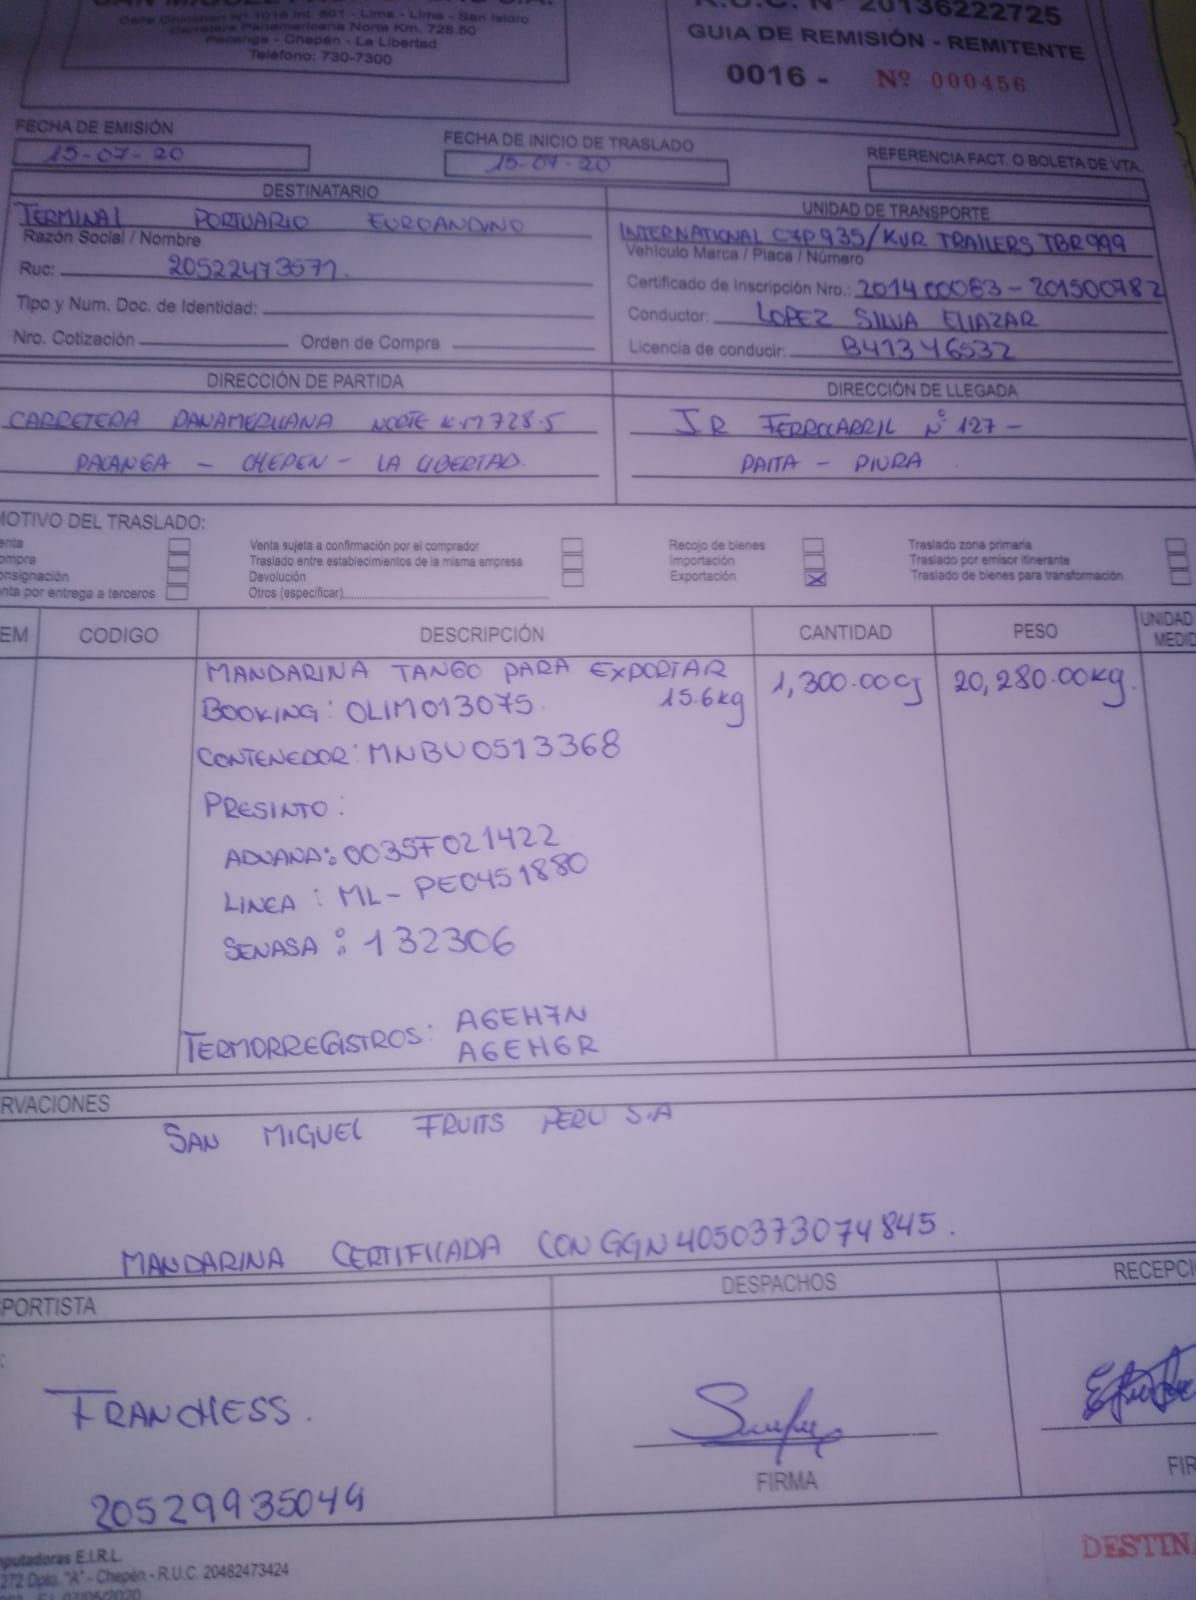 R.U.C. Nº 20136222725
Calle Chinchon Nº 1018 Int. 501 - Lima - Lima - San Isidro
Carretera Panamericana Norte Km. 728.50
Pacanga - Chepén - La Libertad
Teléfono: 730-7300
GUIA DE REMISIÓN - REMITENTE
0016 - Nº 000456
FECHA DE EMISIÓN
15-07-20
FECHA DE INICIO DE TRASLADO
15-07-20
REFERENCIA FACT. O BOLETA DE VTA.
DESTINATARIO
TERMINAL PORTUARIO EUROANDINO
Razón Social / Nombre
Ruc: 20522473571.
Tipo y Num. Doc. de Identidad:
Nro. Cotización Orden de Compra
UNIDAD DE TRANSPORTE
INTERNATIONAL C7P935/KUR TRAILERS TBR999
Vehículo Marca / Placa / Número
Certificado de Inscripción Nro.: 201400083-201500782
Conductor: LOPEZ SILVA ELIAZAR
Licencia de conducir: B41346532
DIRECCIÓN DE PARTIDA
CARRETERA PANAMERICANA NORTE KM 728.5
PACANGA - CHEPEN - LA LIBERTAD.
DIRECCIÓN DE LLEGADA
JR FERROCARRIL Nº 127 -
PAITA - PIURA
MOTIVO DEL TRASLADO:
enta
ompra
onsignación
nta por entrega a terceros
Venta sujeta a confirmación por el comprador
Traslado entre establecimientos de la misma empresa
Devolución
Otros (especificar)
Recojo de bienes
Importación
Exportación X
Traslado zona primaria
Traslado por emisor itinerante
Traslado de bienes para transformación
EM CODIGO DESCRIPCIÓN CANTIDAD PESO UNIDAD
MEDID
MANDARINA TANGO PARA EXPORTAR 1,300.00cj 20,280.00kg.
BOOKING: OLIM013075. 15.6kg
CONTENEDOR: MNBU0513368
PRESINTO:
ADUANA: 0035F021422
LINEA: ML-PE0451880
SENASA: 132306
TERMORREGISTROS: A6EH7N
A6EH6R
RVACIONES
SAN MIGUEL FRUITS PERU S.A
MANDARINA CERTIFICADA CON GGN 4050373074845.
PORTISTA
DESPACHOS
RECEPCI
FRANCHESS.
20529935049
FIRMA
FIR
DESTIN
putadoras E.I.R.L.
272 Dpto. "A" - Chepén - R.U.C. 20482473424